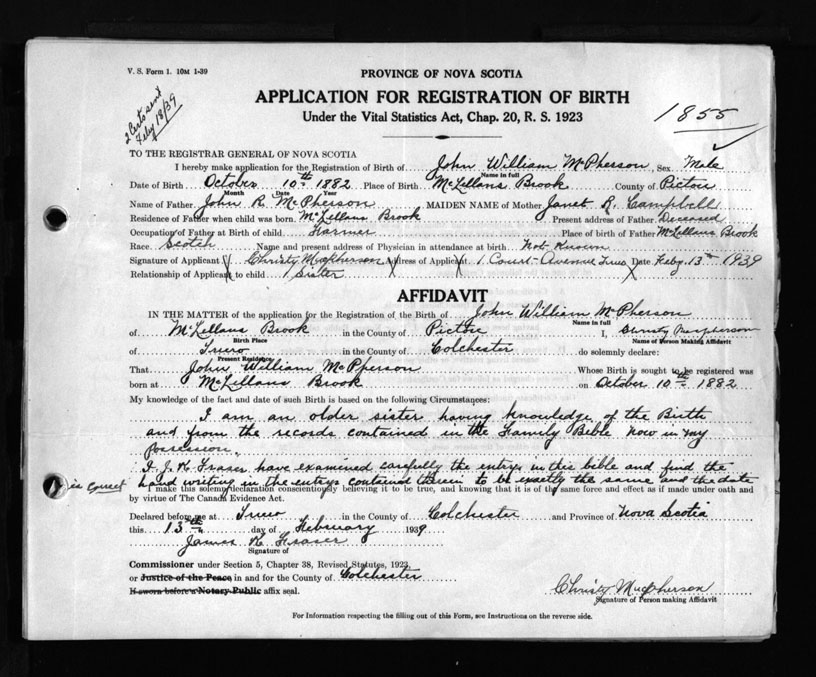 V. S. Form 1. 10M 1-39
2 Certs sent
Feby 18/39
PROVINCE OF NOVA SCOTIA
APPLICATION FOR REGISTRATION OF BIRTH
Under the Vital Statistics Act, Chap. 20, R. S. 1923
1855
TO THE REGISTRAR GENERAL OF NOVA SCOTIA
I hereby make application for the Registration of Birth of John William McPherson, Sex Male
Name in full
Date of Birth October 10th 1882 Place of Birth McLellans Brook County of Pictou
Month Date Year
Name of Father John R. McPherson MAIDEN NAME of Mother Janet R. Campbell
Residence of Father when child was born McLellans Brook Present address of Father Deceased
Occupation of Father at Birth of child Farmer Place of birth of Father McLellans Brook
Race Scotch Name and present address of Physician in attendance at birth Not Known
Signature of Applicant X Christy Macpherson Address of Applicant 1 Court Avenue Truro Date Feby 13th 1939
Relationship of Applicant to child Sister
AFFIDAVIT
IN THE MATTER of the application for the Registration of the Birth of John William McPherson
Name in full
of McLellans Brook in the County of Pictou I, Christy Macpherson
Birth Place Name of Person Making Affidavit
of Truro in the County of Colchester do solemnly declare:
Present Residence
That John William McPherson Whose Birth is sought to be registered was
born at McLellans Brook on October 10th 1882
My knowledge of the fact and date of such Birth is based on the following Circumstances:
I am an older sister having knowledge of the Birth
and from the records contained in the Family Bible now in my
possession.
I, J. K. Fraser have examined carefully the entrys in this bible and find the
hand writing in the entrys contained therein to be exactly the same and the date
is correct
I make this solemn declaration conscientiously believing it to be true, and knowing that it is of the same force and effect as if made under oath and
by virtue of The Canada Evidence Act.
Declared before me at Truro in the County of Colchester and Province of Nova Scotia
this 13th day of February 1939
James K Fraser
Signature of
Commissioner under Section 5, Chapter 38, Revised Statutes, 1923,
or Justice of the Peace in and for the County of Colchester
If sworn before a Notary Public affix seal.
Christy Macpherson
Signature of Person making Affidavit
For Information respecting the filling out of this Form, see Instructions on the reverse side.